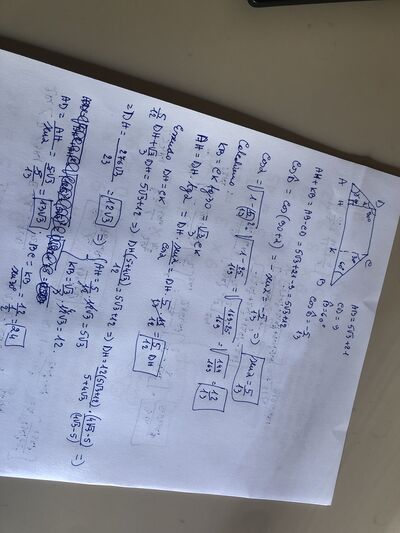 D C
A H K B
60°
AB = 5√3+21
CD = 9
B̂ = 60°
cos δ̂ = -5/13
AH + KB = AB - CD = 5√3+21-9 = 5√3+12
cos δ̂ = cos(90+α) = -sin α = -5/13 => sin α = 5/13
cos α = √(1-(5/13)²) = √(1-25/169) = √((169-25)/169) = √(144/169) = 12/13
KB = CK tg30 = √3/3 CK
AH = DH tg α = DH sin α/cos α = DH 5/13 · 13/12 = 5/12 DH
Essendo DH = CK
5/12 DH + √3/3 DH = 5√3+12 => DH (5+4√3)/12 = 5√3+12 => DH = 12(5√3+12)/(5+4√3) · (4√3-5)/(4√3-5) =>
=> DH = 276√3/23 = 12√3 => AH = 5/12 · 12√3 = 5√3
KB = √3/3 · 12√3 = 12.
AD = AH/sin α = 5√3/(5/13) = 13√3 ; BC = KB/cos 60° = 12/(1/2) = 24